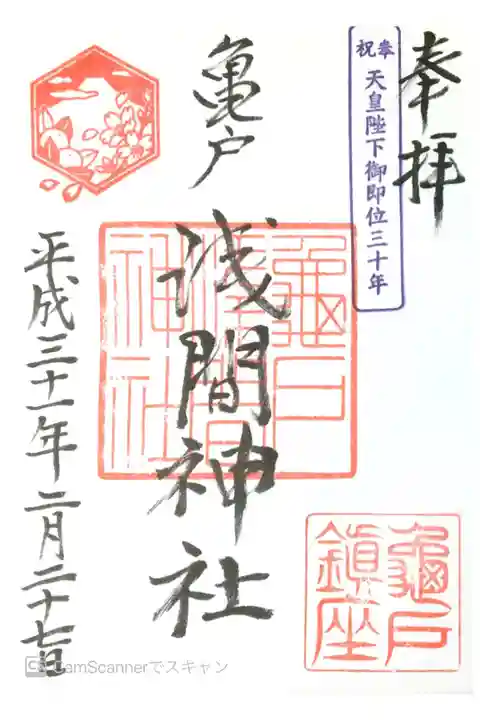 奉拝
奉祝 天皇陛下御即位三十年
亀戸
浅間神社
龜戸
浅間
神社
龜戸
鎮座
平成三十一年二月二十七日
CamScannerでスキャン